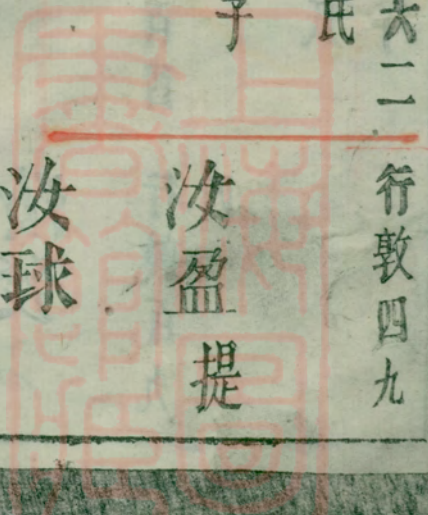 六二一
行敦四九
氏
子
汝盈提
汝球